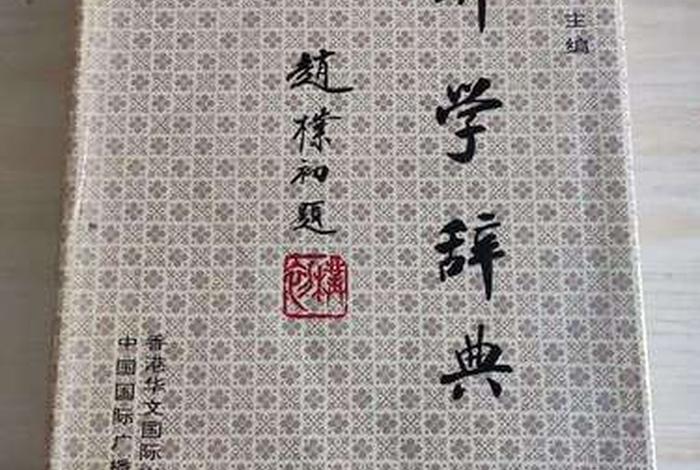 主编
学辞典
趙樸初題
香港华文国际
中国国际广播